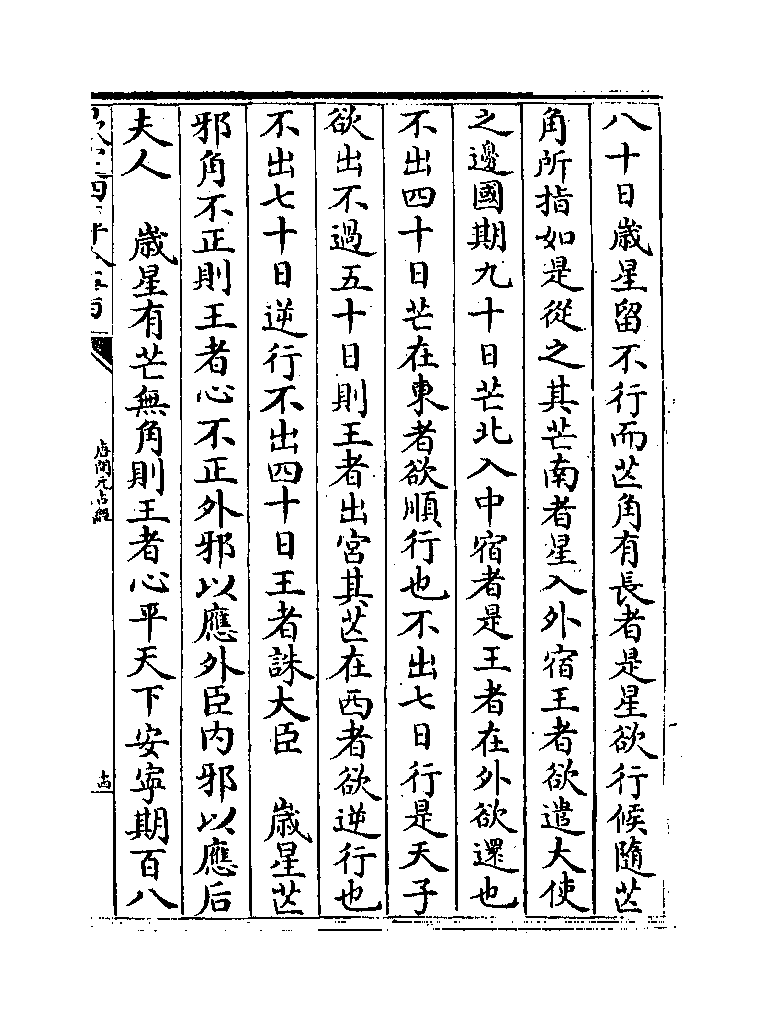 八十日歳星留不行而芒角有長者是星欲行候隨芒
角所指如是從之其芒南者星入外宿王者欲遣大使
之邊國期九十日芒北入中宿者是王者在外欲還也
不出四十日芒在東者欲順行也不出七日行是天子
欲出不過五十日則王者出宮其芒在西者欲逆行也
不出七十日逆行不出四十日王者誅大臣　歳星芒
邪角不正則王者心不正外邪以應外臣内邪以應后
夫人　歳星有芒無角則王者心平天下安寜期百八
唐開元占經